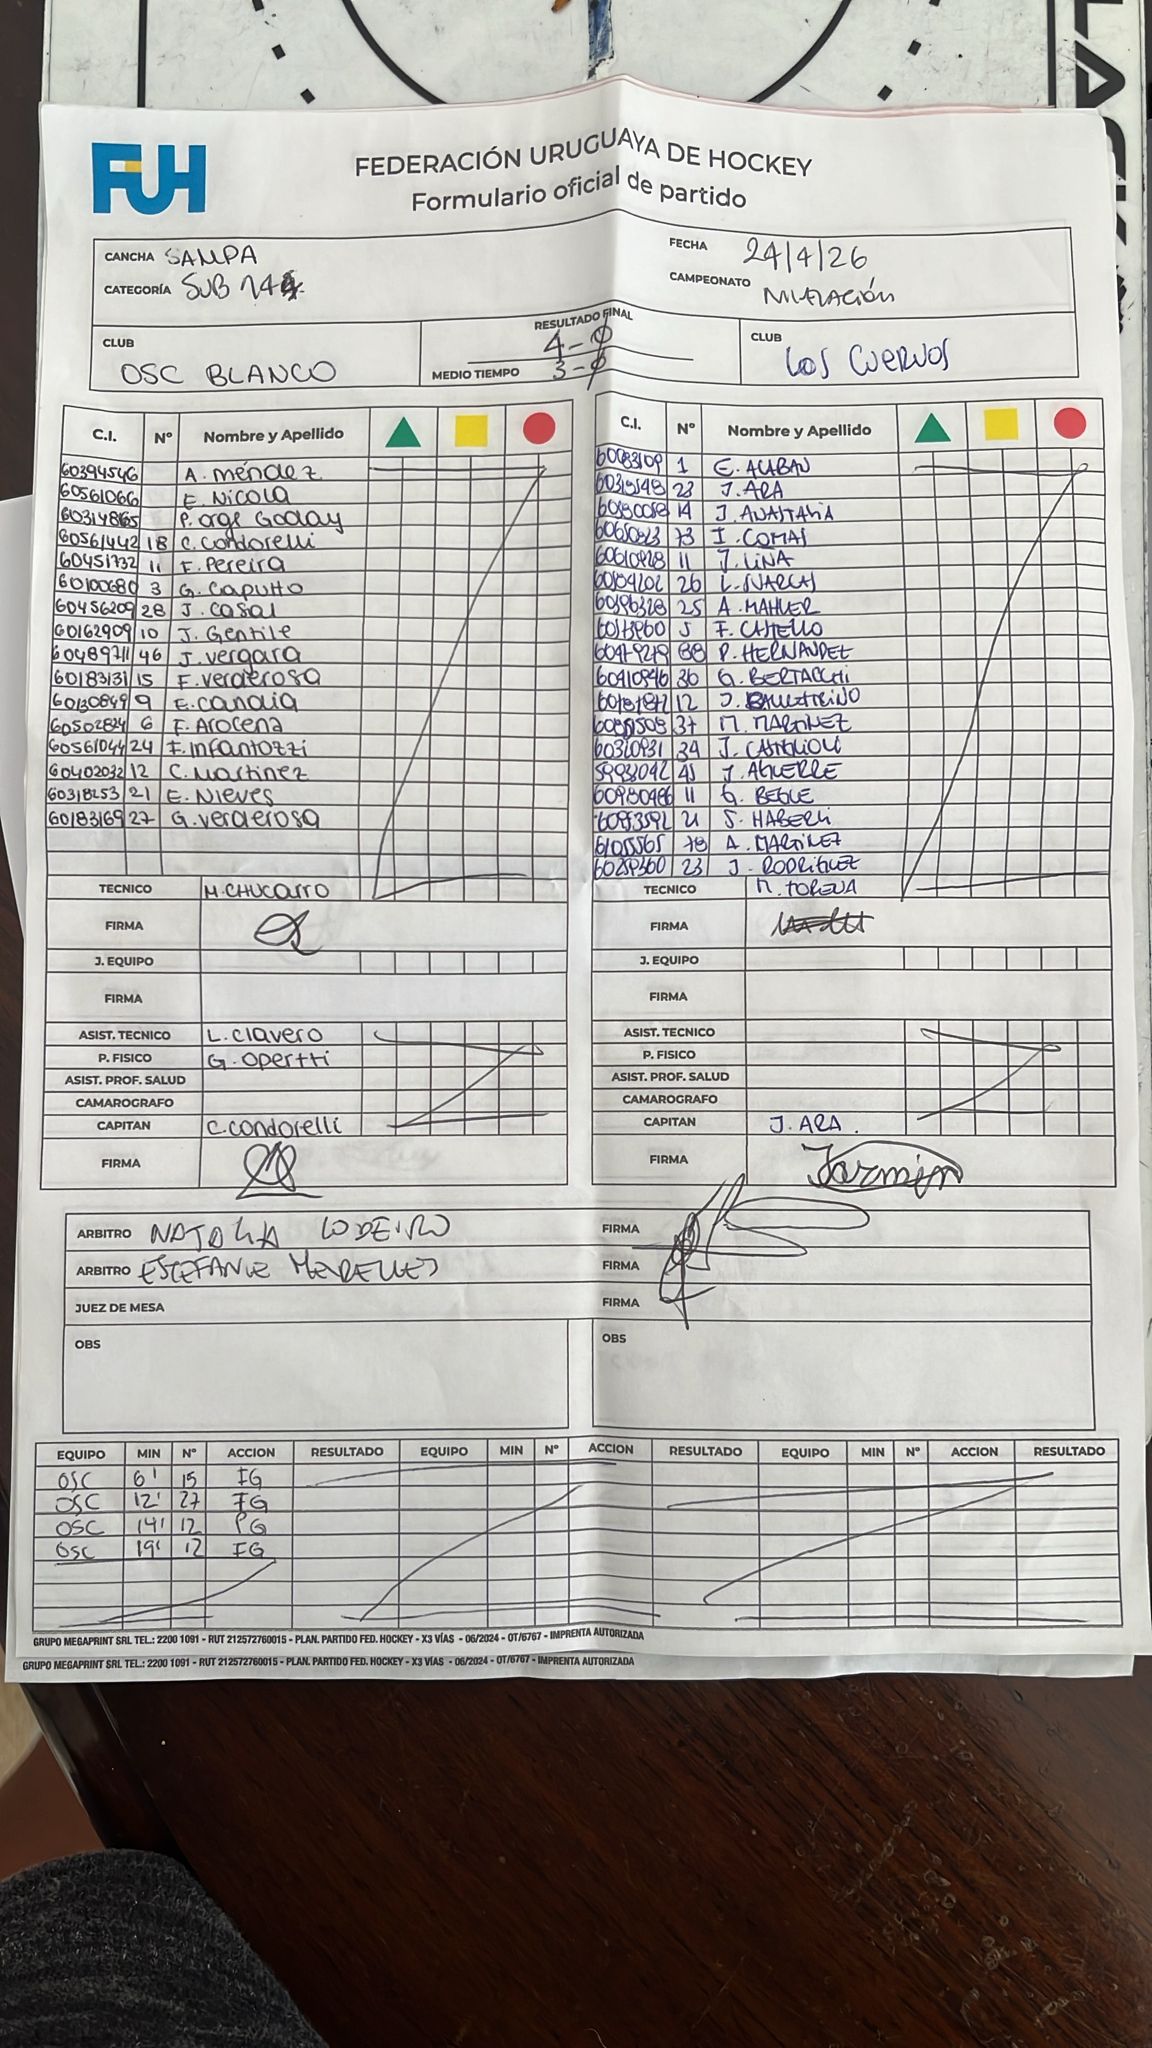 FUH
FEDERACIÓN URUGUAYA DE HOCKEY
Formulario oficial de partido
CANCHA SAMPA
FECHA 24/4/26
CATEGORÍA SUB 14
CAMPEONATO NIVELACIÓN
CLUB OSC BLANCO
RESULTADO FINAL 4-0
MEDIO TIEMPO 3-0
CLUB LOS CUERVOS
C.I. Nº Nombre y Apellido
60394546 A. Méndez
60561066 E. Nicola
P. Orge Goday
60561442 18 C. Condorelli
60451732 11 F. Pereira
60100680 3 G. Caputto
60456209 28 J. Casal
60162909 10 J. Gentile
60489711 46 J. Vergara
60183131 15 F. Verderosa
60130849 9 E. Candia
60502824 6 F. Arocena
60561044 24 F. Infantozzi
60402032 12 C. Martinez
60318253 21 E. Nieves
60183169 27 G. Verderosa
TECNICO M. CHUCARRO
FIRMA
J. EQUIPO
FIRMA
ASIST. TECNICO L. Clavero
P. FISICO G. Opertti
ASIST. PROF. SALUD
CAMAROGRAFO
CAPITAN C. Condorelli
FIRMA
C.I. Nº Nombre y Apellido
1 E.
23 J. ARA
14 J.
I. COMAS
11 J. LINA
26
25 A. MAHLER
5 F.
88 P. HERNANDEZ
36 G. BERTACCHI
12 J.
37 M. MARTINEZ
34 J.
J. AGUERRE
11 G. BEGLE
21 S.
78 A. MARTINEZ
23 J. RODRIGUEZ
TECNICO M. TORENA
FIRMA
J. EQUIPO
FIRMA
ASIST. TECNICO
P. FISICO
ASIST. PROF. SALUD
CAMAROGRAFO
CAPITAN J. ARA.
FIRMA
ARBITRO NATALIA LODEIRO FIRMA
ARBITRO ESTEFANIE MEIRELLES FIRMA
JUEZ DE MESA FIRMA
OBS OBS
EQUIPO MIN Nº ACCION RESULTADO EQUIPO MIN Nº ACCION RESULTADO EQUIPO MIN Nº ACCION RESULTADO
OSC 6' 15 FG
OSC 12' 27 FG
OSC 14' 12 PG
OSC 19' 12 FG
GRUPO MEGAPRINT SRL TEL.: 2200 1091 - RUT 212572760015 - PLAN. PARTIDO FED. HOCKEY - X3 VÍAS - 06/2024 - OT/6767 - IMPRENTA AUTORIZADA
GRUPO MEGAPRINT SRL TEL.: 2200 1091 - RUT 212572760015 - PLAN. PARTIDO FED. HOCKEY - X3 VÍAS - 06/2024 - OT/6767 - IMPRENTA AUTORIZADA